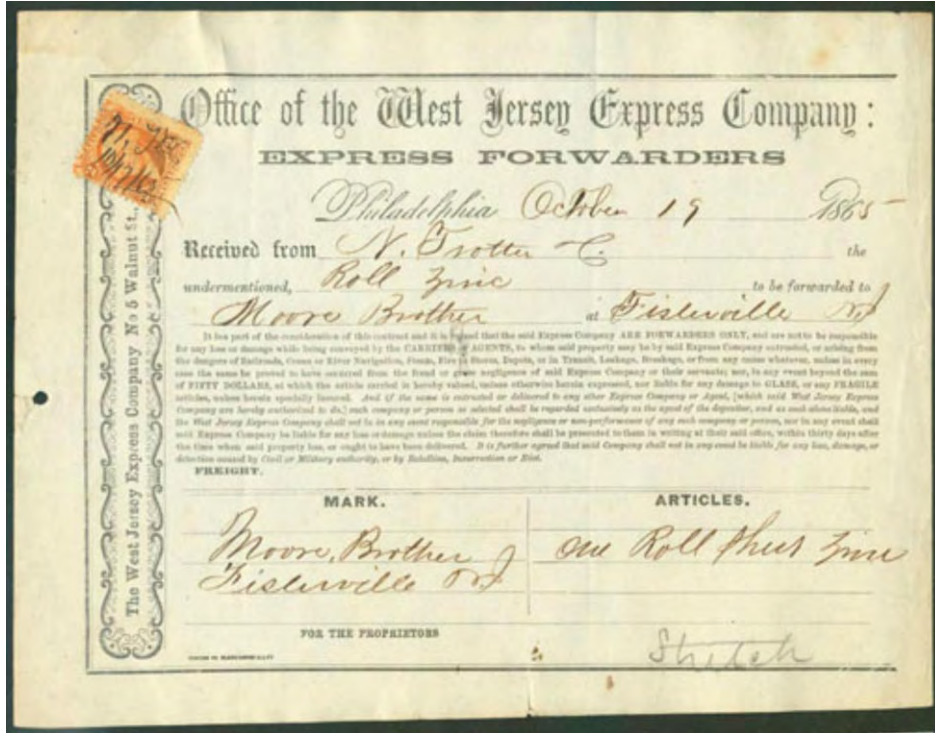 Office of the West Jersey Express Company:
EXPRESS FORWARDERS
Philadelphia October 19 1865
Received from N. Trotter C. the
undermentioned, Roll Zinc to be forwarded to
Moore Brother at Fislerville NJ
It is a part of the consideration of this contract and it is agreed that the said Express Company ARE FORWARDERS ONLY, and are not to be responsible
for any loss or damage while being conveyed by the CARRIERS or AGENTS, to whom said property may be by said Express Company entrusted, or arising from
the dangers of Railroads, Ocean or River Navigation, Steam, Fire in Stores, Depots, or in Transit, Leakage, Breakage, or from any cause whatever, unless in every
case the same be proved to have occurred from the fraud or gross negligence of said Express Company or their servants; nor, in any event beyond the sum
of FIFTY DOLLARS, at which the article carried is hereby valued, unless otherwise herein expressed, nor liable for any damage to GLASS, or any FRAGILE
articles, unless herein specially insured. And if the same is entrusted or delivered to any other Express Company or Agent, [which said West Jersey Express
Company are hereby authorized to do,] such company or person so selected shall be regarded exclusively as the agent of the depositor, and as such alone liable, and
the West Jersey Express Company shall not be in any event responsible for the negligence or non-performance of any such company or person, nor in any event shall
said Express Company be liable for any loss or damage unless the claim therefor shall be presented to them in writing at their said office, within thirty days after
the time when said property has, or ought to have been delivered. It is further agreed that said Company shall not in any event be liable for any loss, damage, or
detention caused by Civil or Military authority, or by Rebellion, Insurrection or Riot.
FREIGHT.
MARK. ARTICLES.
Moore, Brother One Roll Sheet Zinc
Fislerville NJ
FOR THE PROPRIETORS
Stretch
The West Jersey Express Company No 5 Walnut St.,